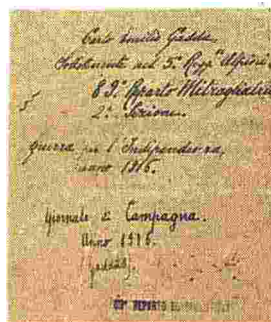 Carlo Emilio Gadda.
Sottotenente nel 5° Regg. Alpini
89° Reparto Mitragliatrici
2ª Sezione.
guerra per l'Indipendenza,
anno 1916.
Giornale di Campagna.
Anno 1916.
(Gadda).
REPARTO